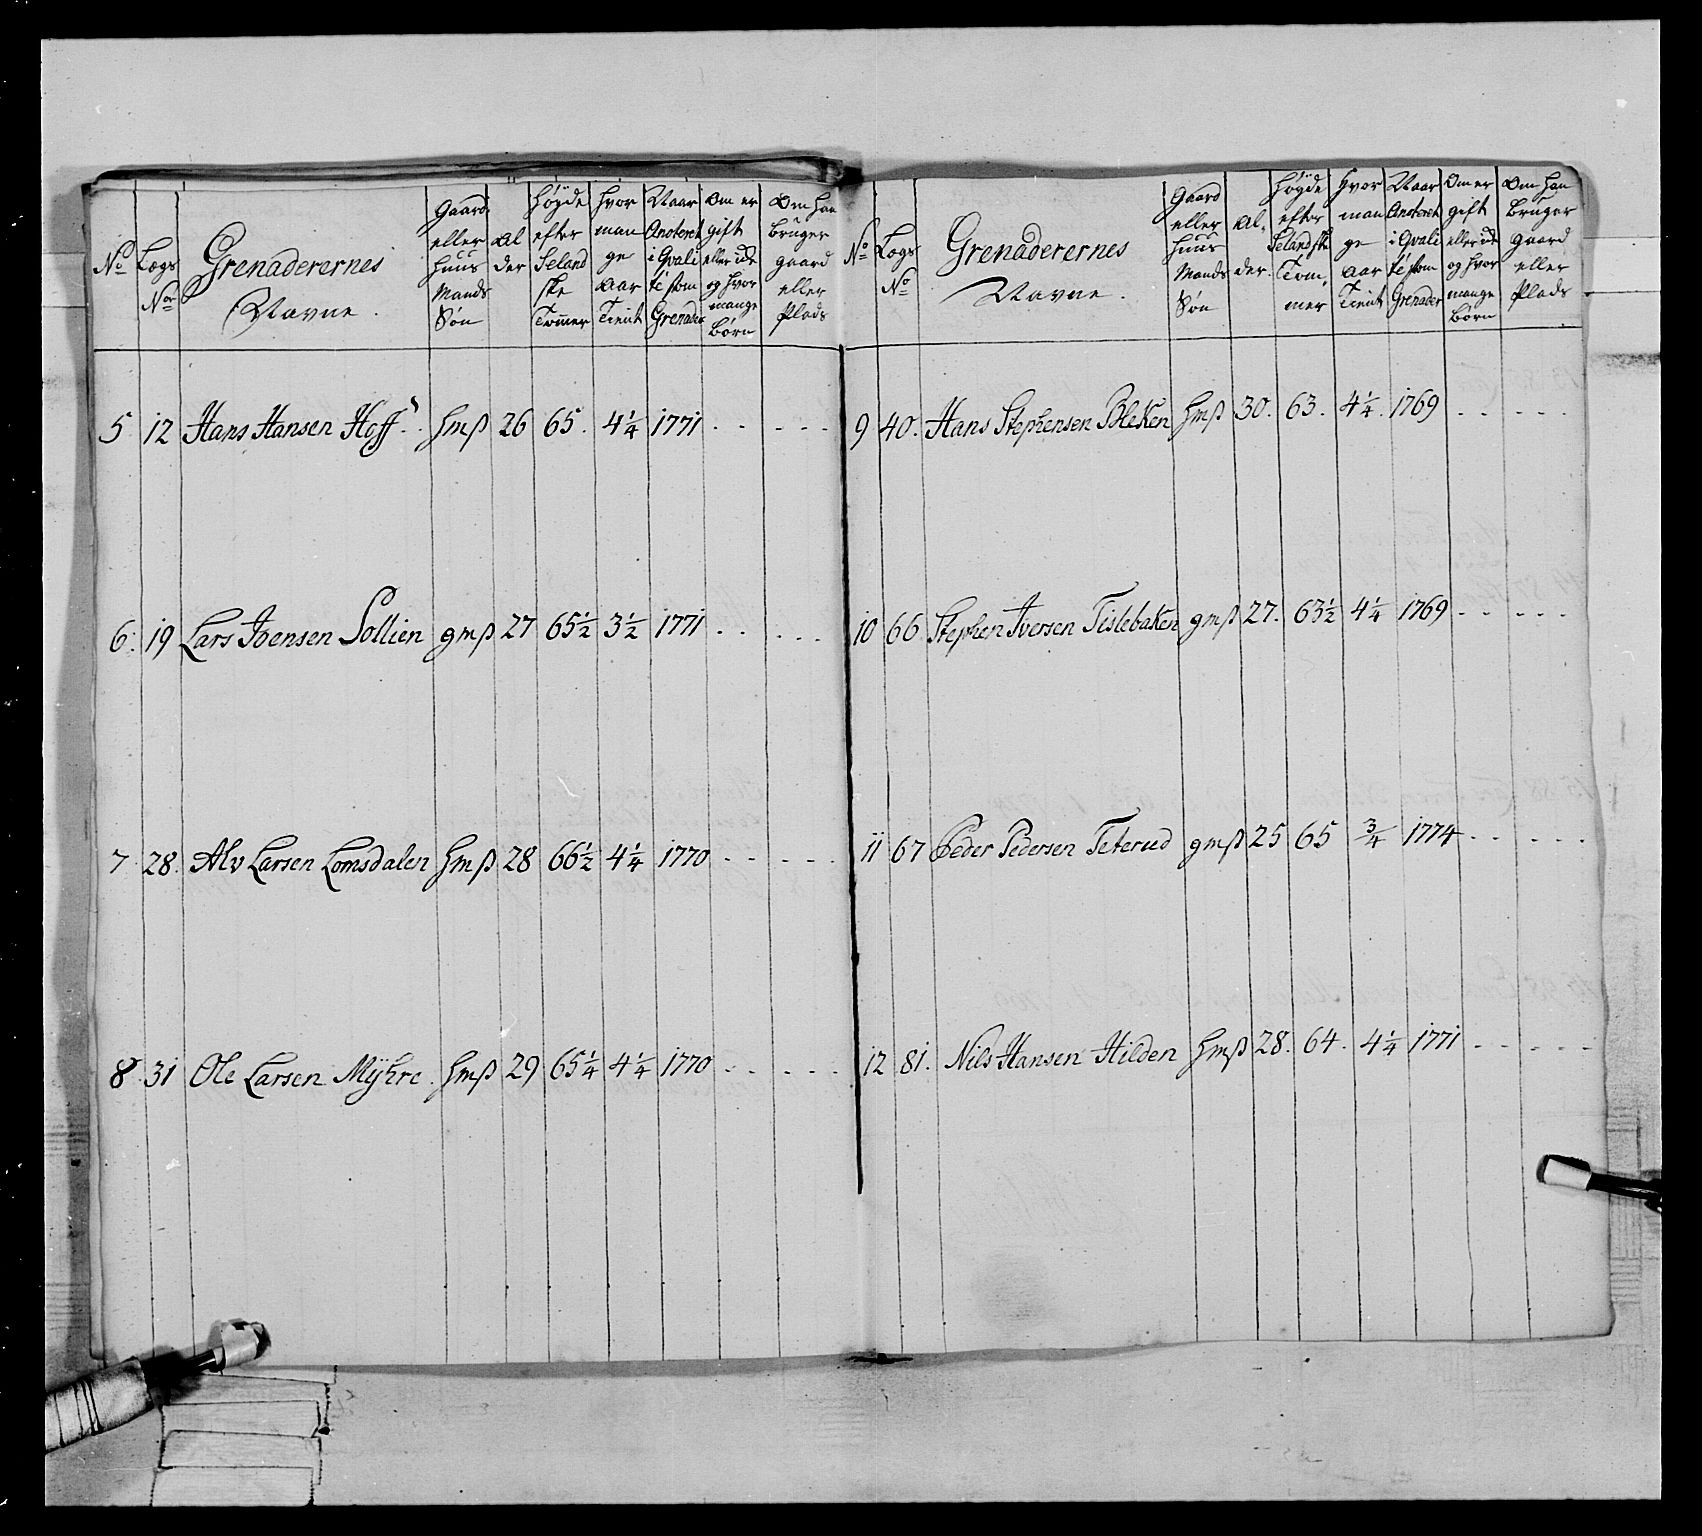 No
Logs
No
Grenaderernes
Navne.
Gaard
eller
Huus
Mands
Søn
Al
der
Høyde
efter
Seland
ske
Tom̅er
Hvor
man
ge
Aar
Tient
Naar
Anoteret
i Qvali
té som
Grenader
Om er
gift
eller ide
og hvor
mange
Børn
Om han
bruger
gaard
eller
Plads
5 12 Hans Hansen Hoff hmß 26 65. 4 1/4 1771 - - - - -
6. 19 Lars Joensen Sollien gmß 27 65 1/2 3 1/2 1771 - - - - -
7 28. Alv Larsen Lomsdalen hmß 28 66 1/2 4 1/4 1770 - - - - -
8 31 Ole Larsen Mÿhre. hmß 29 65 1/4 4 1/4 1770 - - - - -
No
Logs
No
Grenaderernes
Navne.
Gaard
eller
Huus
Mands
Søn
Al,
der.
Høyde
efter
Selandske
Tom,
mer
Hvor
man
ge
Aar
Tient
Naar
Anoteret
i Qvali
té som
Grenader
Om er
gift
eller ide
og hvor
mange
Børn
Om han
bruger
gaard
eller
Plads
9 40. Hans Stephensen Bleken hmß 30. 63. 4 1/4. 1769 - - - - -
10 66 Stephen Iversen Tislebaken gmß 27. 63 1/2 4 1/4 1769 - - - - -
11 67 Peder Pedersen Teterud gmß 25 65 3/4 1774 - - - - -
12 81. Nils Hansen Hilden hmß 28. 64. 4 1/4 1771 - - - - -